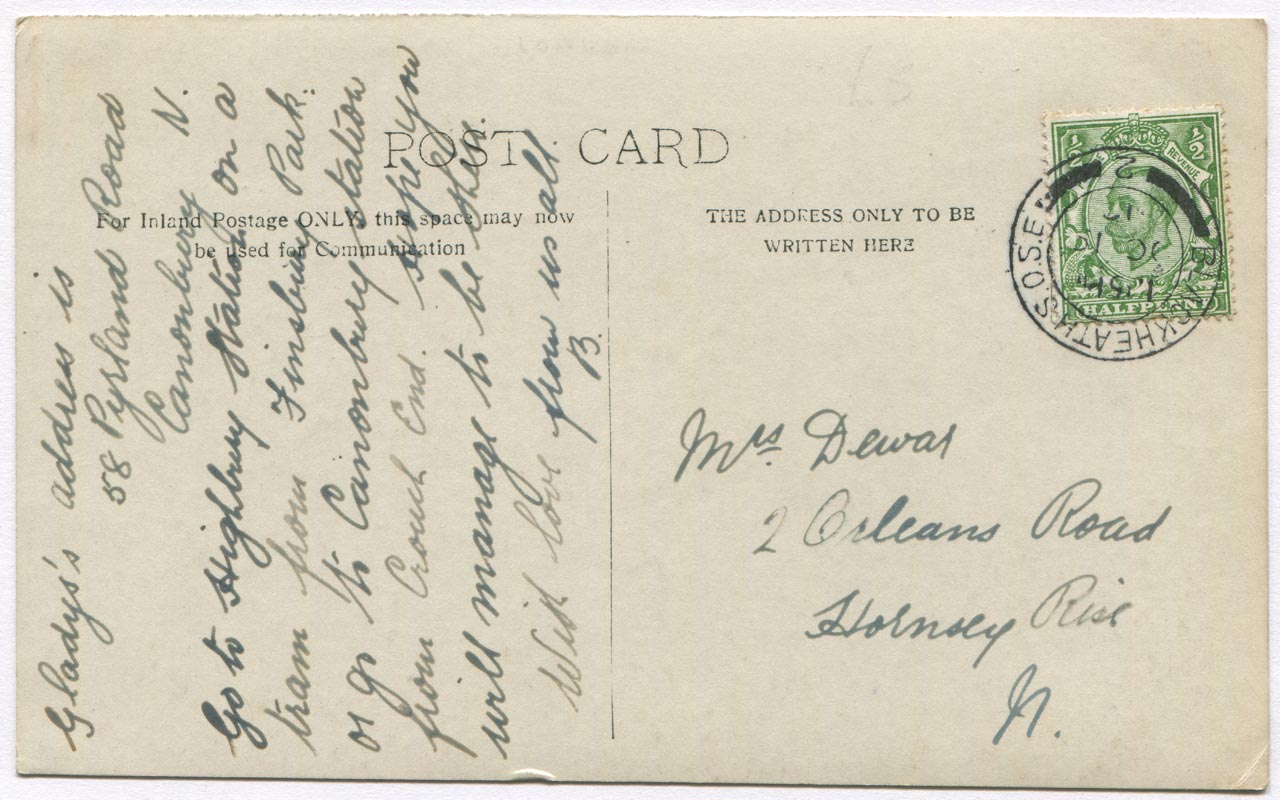 POST CARD
For Inland Postage ONLY, this space may now
be used for Communication
THE ADDRESS ONLY TO BE
WRITTEN HERE
Gladys's address is
58 Pyrland Road
Canonbury N.
Go to Highbury Station on a
tram from Finsbury Park.
or go to Canonbury station
from Crouch End. hope you
will manage to be then.
With love from us all
B.
Mrs. Dewar
2 Orleans Road
Hornsey Rise
N.
L S
1/2 1/2
REVENUE
HALFPENNY
BLACKHEATH S.O. S.E.
2
OC 10